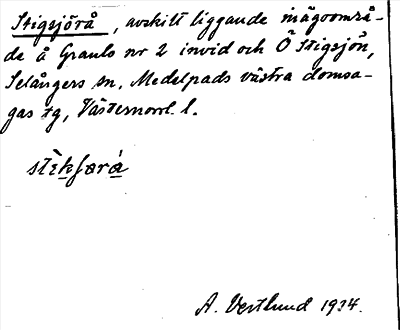 Stigsjörå, avskilt liggande inägoområ-
de å Granlo nr 2 invid och Ö Stigsjön,
Selångers sn, Medelpads västra domsa-
gas tg, Västernorrl. l.
stèkʃərà
A. Vestlund 1934.